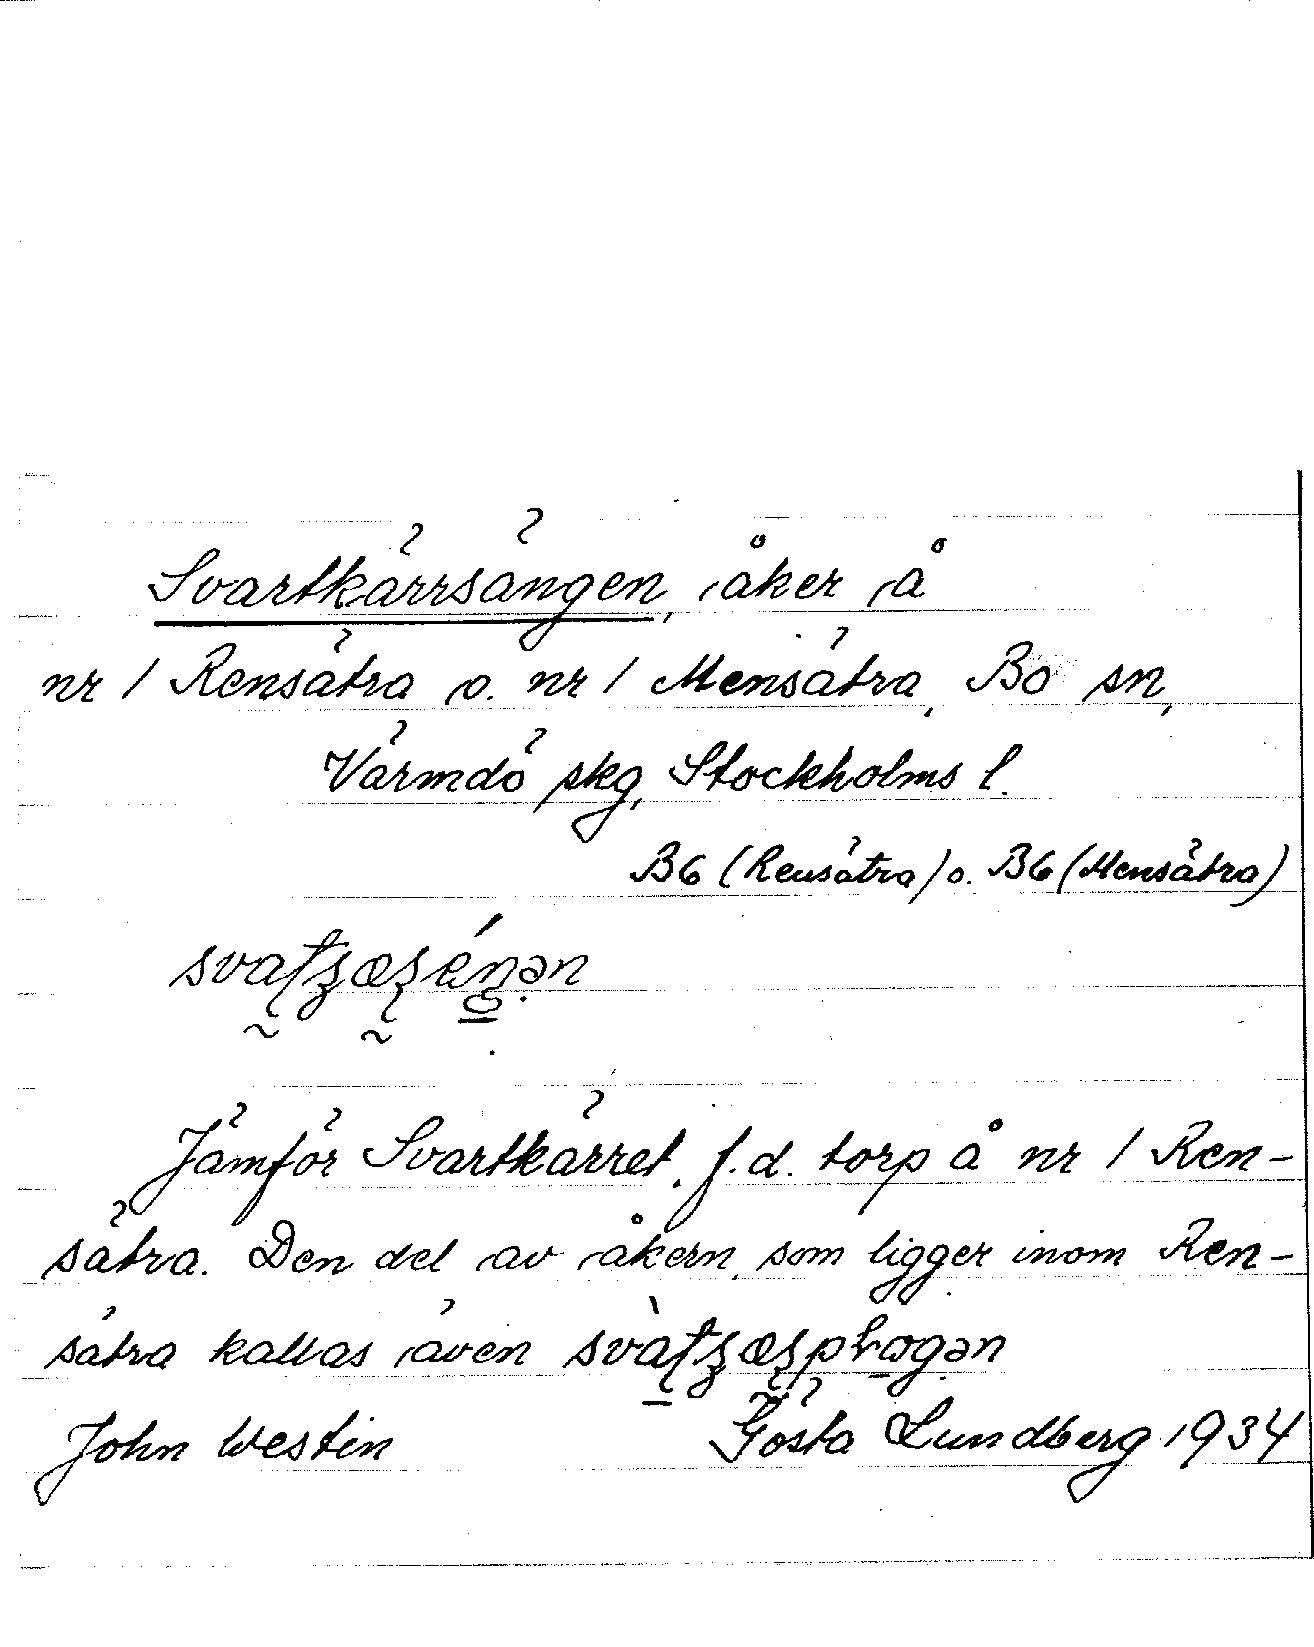 Svartkärrsängen, åker å
nr 1 Rensätra o. nr 1 Mensätra, Bo sn,
Värmdö skg, Stockholms l.
B6 (Rensätra) o. B6 (Mensätra)
Jämför Svartkärret, f.d. torp å nr 1 Ren-
sätra. Den del av åkern, som ligger inom Ren-
sätra kallas även
John Westin Gösta Lundberg 1934